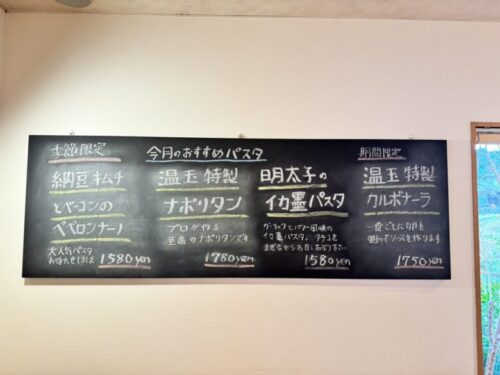 今月のおすすめパスタ
季節限定
納豆キムチ
とベーコンの
ペペロンチーノ
大人気パスタ
お待たせしました
1580yen
温玉特製
ナポリタン
プロが作る
至高のナポリタンです
1780yen
明太子の
イカ墨パスタ
ガーリックとバター風味の
イカ墨パスタ。
まぜながらお召し上がり下さい
1580yen
期間限定
温玉特製
カルボナーラ
一食ごとに卵を
割ってソースを作ります
1750yen